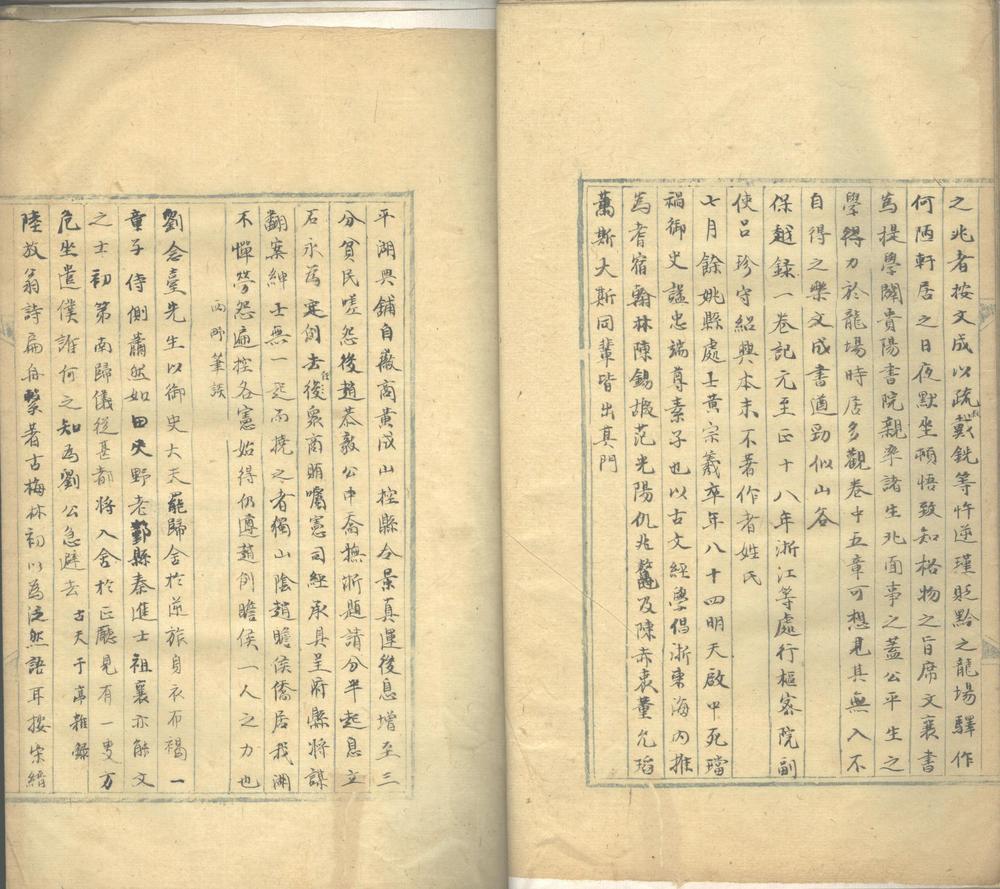 之兆者按文成以疏戴銑等忤逆瑾貶黔之龍場驛作
何陋軒居之日夜默坐頓悟致知格物之旨席文襄書
為提學闢貴陽書院親率諸生北面事之蓋公平生之
學得力於龍場時居多觀卷中五章可想見其無入不
自得之樂文成書遒勁似山谷
保越録一卷記元至正十八年浙江等處行樞密院副
使呂珍守紹興本末不著作者姓氏
七月餘姚縣處士黃宗羲卒年八十四明天啟中死璫
禍御史諡忠端尊素子也以古文經學倡浙東海內推
為耆宿翰林陳錫嘏范光陽仇兆鰲及陳赤衷董允瑫
萬斯大斯同輩皆出其門
平湖典鋪自徽商黃成山控縣令景真運後息增至三
分貧民嗟怨後趙恭毅公申喬撫浙題請分半起息立
石永為定例去後衆商賄囑憲司經承具呈府縣將謀
翻案紳士無一起而撓之者獨山陰趙瞻侯僑居我湖
不憚勞怨遍控各憲始得仍遵趙例瞻侯一人之力也
兩 筆談
劉念臺先生以御史大夫罷歸舍於逆旅身衣布褐一
童子侍側蕭然如田夫野老鄞縣秦進士祖襄亦能文
之士初第南歸儀從甚都將入舍於正廳見有一叟方
危坐遣僕誰何之知為劉公急避去 古天于亭雜錄
陸放翁詩扁舟繫著古梅林初以為泛然語耳按宋緝